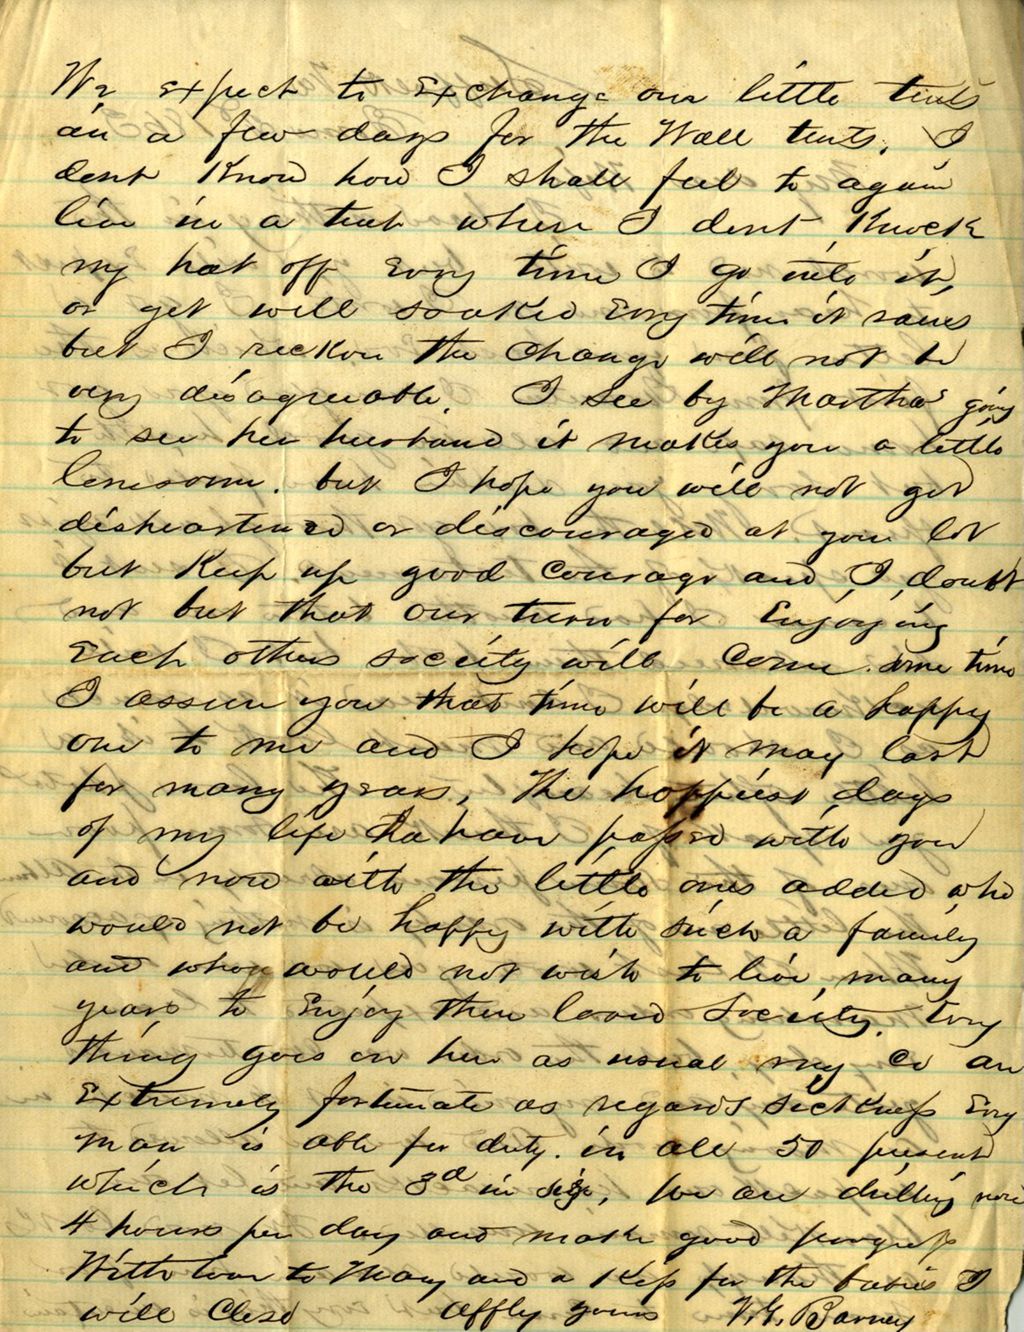 We expect to Exchange our little tents
in a few days for the Wall tents. I
dont Know how I shall feel to again
live in a tent where I dont Knock
my hat off Every time I go into it,
or get well soaked Every time it rains
but I reckon the change will not be
very disagreeable. I see by Marthas going
to see her husband it makes you a little
lonesome. but I hope you will not get
disheartened or discouraged at your lot
but Keep up good Courage and I, doubt
not but that our turn for Enjoying
Each others society will Come. some time
I assure you that time will be a happy
one to me and I hope it may last
for many years, The happiest days
of my life have passed with you
and now with the little ones added who
would not be happy with such a family
and who would not wish to live, many
years to Enjoy their loved Society. Every
thing goes on here as usual my Co are
Extremely fortunate as regards sickness Every
man is able for duty. in all 50 present
which is the 3d in size, We are drilling now
4 hours per day and make good progress
With love to Mary and a Kiss for the babies I
will Close Affly yours V.G. Barney